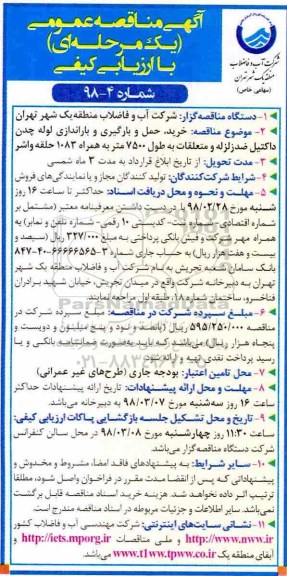 آگهی مناقصه عمومی
(یک مرحله‌ای)
با ارزیابی کیفی
شرکت آب و فاضلاب
منطقه یک شهر تهران
(سهامی خاص)
شماره ۴-۹۸
۱- دستگاه مناقصه‌گزار: شرکت آب و فاضلاب منطقه یک شهر تهران
۲- موضوع مناقصه: خرید، حمل و بارگیری و باراندازی لوله چدن
داکتیل ضدزلزله و متعلقات به طول ۷۵۰۰ متر به همراه ۱۰۸۳ حلقه واشر
۳- مدت تحویل: از تاریخ ابلاغ قرارداد به مدت ۳ ماه شمسی
۴- شرایط شرکت‌کنندگان: تولید کنندگان مجاز و یا نمایندگی‌های فروش
۵- مهلت و نحوه و محل دریافت اسناد: حداکثر تا ساعت ۱۶ روز
شنبه مورخ ۹۸/۰۲/۲۸ با در دست داشتن معرفینامه معتبر (مشتمل بر
شماره اقتصادی- شناسه ثبت- کدپستی ۱۰ رقمی- شماره تلفن و نمابر) به
همراه مهر شرکت و فیش بانکی پرداختی به مبلغ ۳۲۷/۰۰۰ ریال (سیصد و
بیست و هفت هزار ریال) به حساب جاری شماره ۳-۶۶۶۶۶۵۶۵-۴۰-۸۴۷
بانک سامان شعبه تجریش به نام شرکت آب و فاضلاب منطقه یک شهر
تهران به دبیرخانه شرکت واقع در میدان تجریش، خیابان شهید برادران
فناخسرو، ساختمان شماره ۱، طبقه اول مراجعه نمایند.
۶- مبلغ سپرده شرکت در مناقصه: مبلغ سپرده شرکت در
مناقصه ۵۹۵/۲۵۰/۰۰۰ ریال (پانصد و نود و پنج میلیون و دویست و
پنجاه هزار ریال) می‌باشد که باید به‌صورت ضمانتنامه بانکی و یا
رسید پرداخت نقدی تهیه و ارائه شود.
۷- محل تامین اعتبار: بودجه جاری (طرح‌های غیر عمرانی)
۸- مهلت و محل ارائه پیشنهادات: تاریخ ارائه پیشنهادات حداکثر
ساعت ۱۶ روز سه‌شنبه مورخ ۹۸/۰۳/۰۷ به دبیرخانه می‌باشد.
۹- تاریخ و محل تشکیل جلسه بازگشایی پاکات ارزیابی کیفی:
ساعت ۱۱:۳۰ روز چهارشنبه مورخ ۹۸/۰۳/۰۸ در محل سالن کنفرانس
شرکت دستگاه مناقصه‌گزار می‌باشد.
۱۰- سایر شرایط: به پیشنهادهای فاقد امضا، مشروط و مخدوش و
پیشنهاداتی که پس از انقضا مدت مقرر در فراخوان واصل شود، مطلقا
ترتیب اثر داده نخواهد شد. هزینه خرید اسناد مناقصه قابل برگشت
نمی‌باشد. سایر اطلاعات و جزئیات مربوطه در اسناد مناقصه مندرج است.
۱۱- نشانی سایت‌های اینترنتی: شرکت مهندسی آب و فاضلاب کشور
http://www.nww.ir و ملی مناقصات http://iets.mporg.ir و
آبفای منطقه یک www.t1ww.tpww.co.ir می‌باشد.